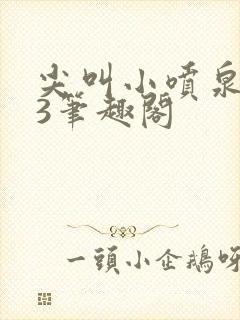 尖叫小噴泉
3筆趣閣
一頭小企鵝呀